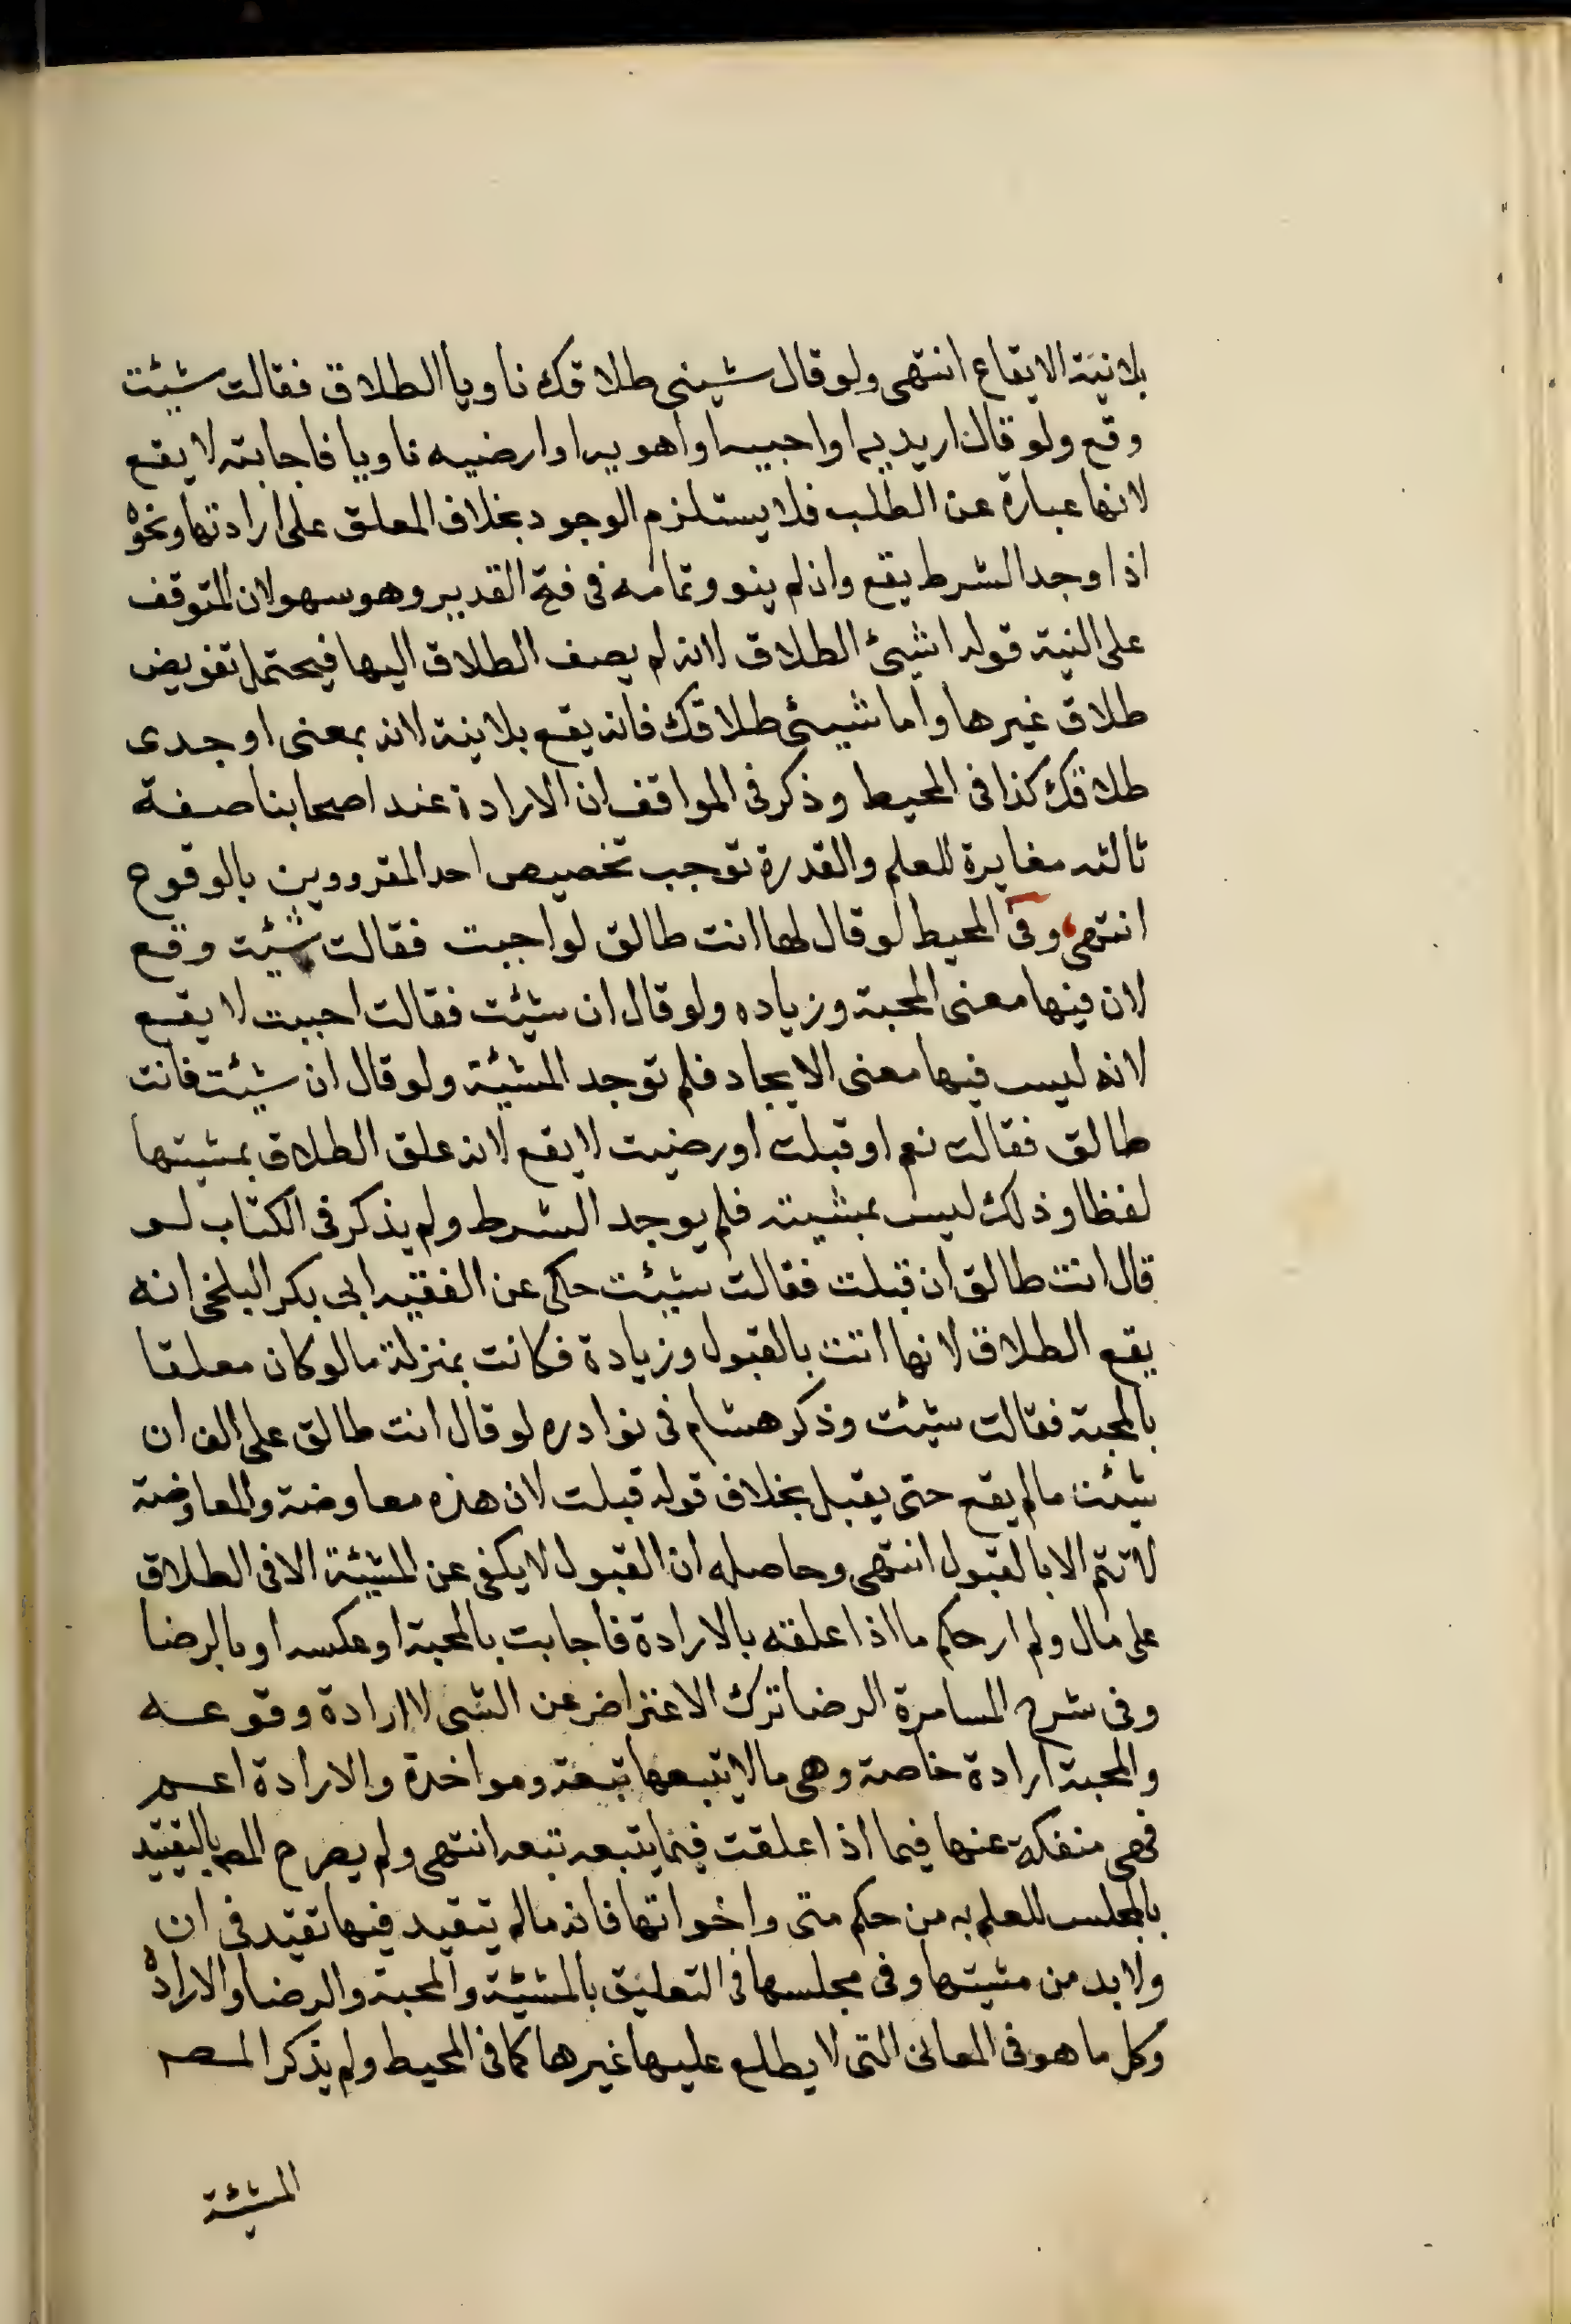 بلا نية الايقاع انتهى ولو قال شيئى طلاقك ناويا الطلاق فقالت شيئت
وقع ولو قال اريديه او احبيه او اهويه او ارضيه ناويا فاجابته لا يقع
لانها عبارة عن الطلب فلا يستلزم الوجود بخلاف المعلق على ارادتها ونحوه
اذا وجد الشرط يقع وان لم ينو وتمامه فى فتح القدير وهو سهو لان المتوقف
على النية قوله اشيئ الطلاق لانه لم يصف الطلاق اليها فيحتمل تفويض
طلاق غيرها واما شيئى طلاقك فانه يقع بلا نية لانه بمعنى اوجدى
طلاقك كذا فى المحيط وذكر فى المواقف ان الارادة عند اصحابنا صفة
ثالثه مغايرة للعلم والقدرة توجب تخصيص احد المقرووين بالوقوع
انتهى وفى المحيط لو قال لها انت طالق لو احببت فقالت شيئت وقع
لان فيها معنى المحبة وزياده ولو قال ان شيئت فقالت احببت لا يقع
لانه ليس فيها معنى الايجاد فلم توجد المشيئة ولو قال ان شيئت فانت
طالق فقالت نعم او قبلت او رضيت لا يقع لانه علق الطلاق بمشيتها
لفظا وذلك ليس بمشيته فلم يوجد الشرط ولم يذكر فى الكتاب لو
قال انت طالق ان قبلت فقالت شيئت حكى عن الفقيه ابى بكر البلخى انه
يقع الطلاق لانها اتت بالقبول وزيادة فكانت بمنزلة ما لو كان معلقا
بالمحبة فقالت شيئت وذكر هشام فى نوادره لو قال انت طالق على الف ان
شيئت مالم يقع حتى يقبل بخلاف قوله قبلت لان هذه معاوضة والمعاوضة
لا تتم الا بالقبول انتهى وحاصله ان القبول لا يكفى عن المشيئة الا فى الطلاق
على مال ولم ار حكم ما اذا علقه بالارادة فاجابت بالمحبة او عكسه او بالرضا
وفى شرح المسامرة الرضا ترك الاعتراض عن الشى لا ارادة وقوعه
والمحبة ارادة خاصة وهى مالا يتبعها تبعة ومواخدة والارادة اعم
فهى منفكة عنها فيما اذا علقت فيما يتبعه تبعه انتهى ولم يصرح المص بالتقييد
بالمجلس للعلم به من حكم متى واخواتها فانه مالم يتقيد فيها تقيد فى ان
ولا بد من مشيتها وفى مجلسها فى التعليق بالمشيئة والمحبة والرضا والارادة
وكل ما هو فى المعانى التى لا يطلع عليها غيرها كما فى المحيط ولم يذكر المصه
المشيئة